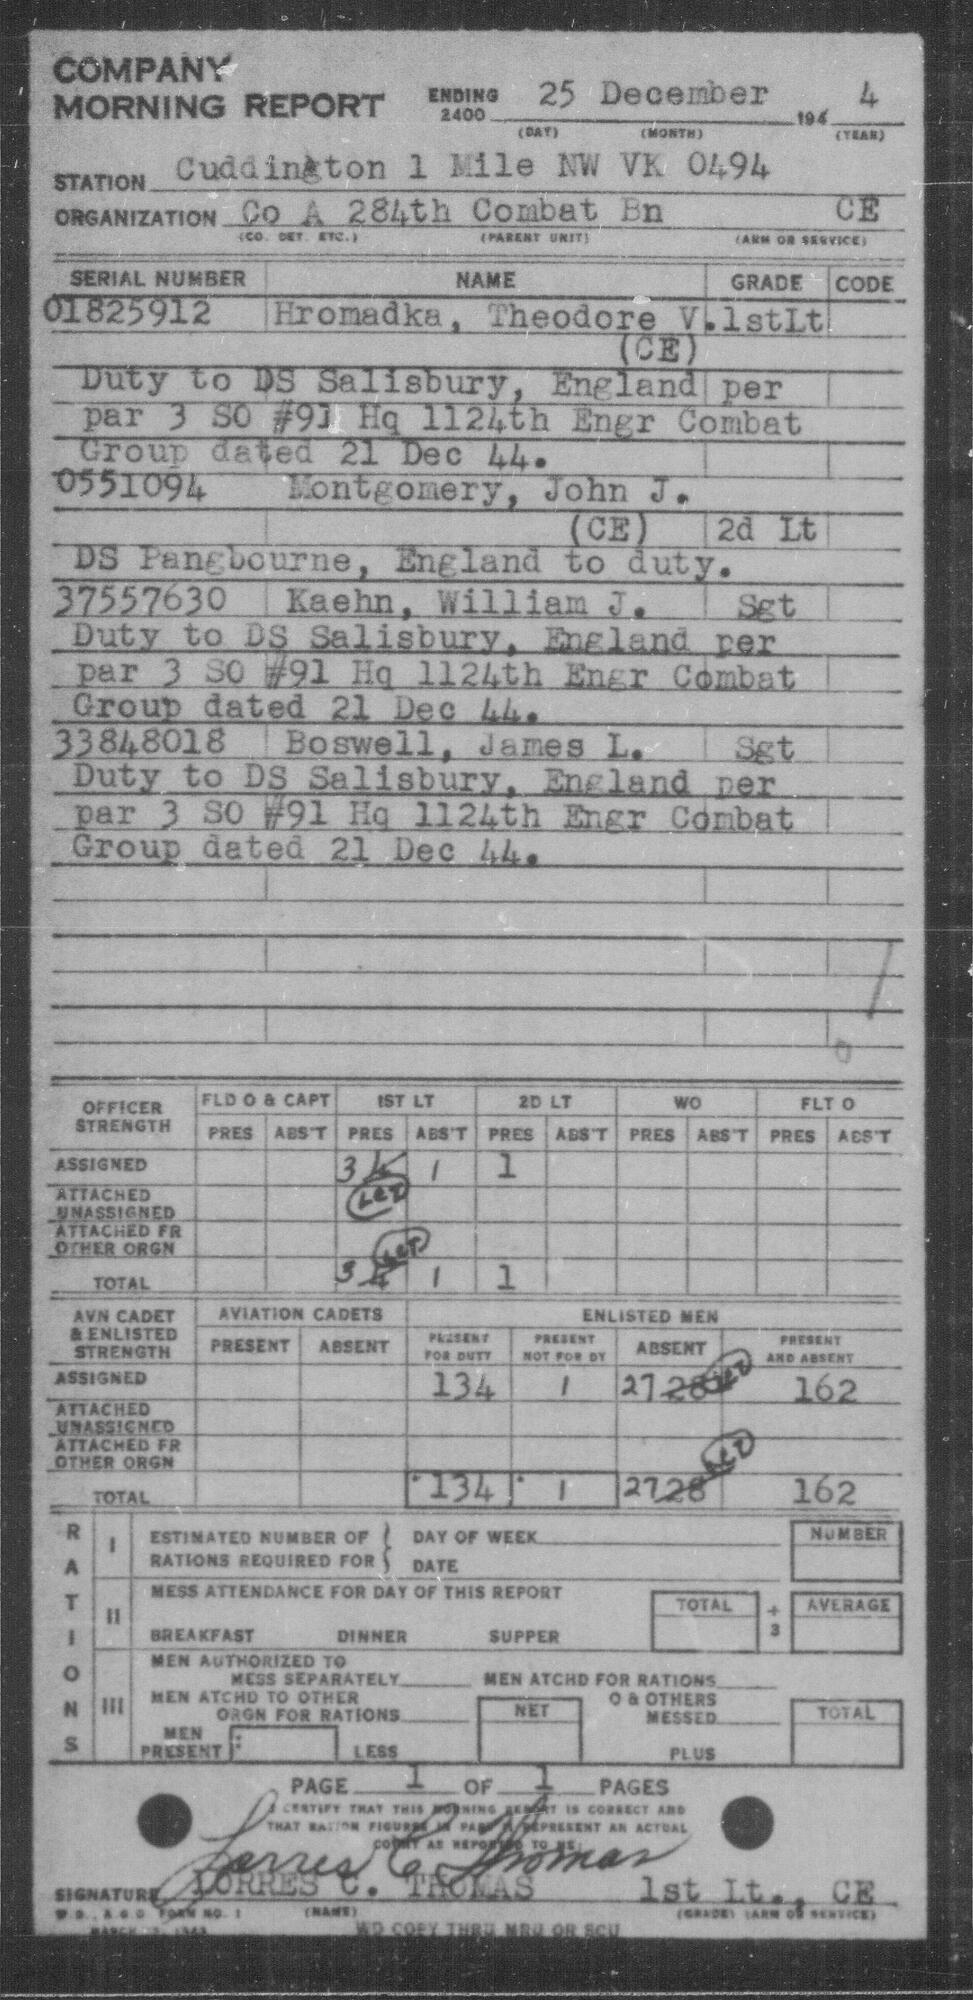 COMPANY
MORNING REPORT ENDING 2400 25 December 194 4
(DAY) (MONTH) (YEAR)
STATION Cuddington 1 Mile NW VK 0494
ORGANIZATION Co A 284th Combat Bn CE
(CO. DET. ETC.) (PARENT UNIT) (ARM OR SERVICE)
SERIAL NUMBER NAME GRADE CODE
01825912 Hromadka, Theodore V. 1stLt
(CE)
Duty to DS Salisbury, England per
par 3 SO #91 Hq 1124th Engr Combat
Group dated 21 Dec 44.
0551094 Montgomery, John J.
(CE) 2d Lt
DS Pangbourne, England to duty.
37557630 Kaehn, William J. Sgt
Duty to DS Salisbury, England per
par 3 SO #91 Hq 1124th Engr Combat
Group dated 21 Dec 44.
33848018 Boswell, James L. Sgt
Duty to DS Salisbury, England per
par 3 SO #91 Hq 1124th Engr Combat
Group dated 21 Dec 44.
OFFICER STRENGTH FLD O & CAPT 1ST LT 2D LT WO FLT O
PRES ABS'T PRES ABS'T PRES ABS'T PRES ABS'T PRES ABS'T
ASSIGNED 3 4 1 1
LCT
ATTACHED UNASSIGNED
ATTACHED FR OTHER ORGN
LCT
TOTAL 3 4 1 1
AVN CADET & ENLISTED STRENGTH AVIATION CADETS ENLISTED MEN
PRESENT ABSENT PRESENT FOR DUTY PRESENT NOT FOR DY ABSENT PRESENT AND ABSENT
ASSIGNED 134 1 27 28 LCT 162
ATTACHED UNASSIGNED
ATTACHED FR OTHER ORGN
LCT
TOTAL 134 1 27 28 162
RATIONS
I ESTIMATED NUMBER OF RATIONS REQUIRED FOR DAY OF WEEK NUMBER
DATE
II MESS ATTENDANCE FOR DAY OF THIS REPORT TOTAL ÷ 3 AVERAGE
BREAKFAST DINNER SUPPER
III MEN AUTHORIZED TO MESS SEPARATELY MEN ATCHD FOR RATIONS
MEN ATCHD TO OTHER ORGN FOR RATIONS NET O & OTHERS MESSED TOTAL
MEN PRESENT LESS PLUS
PAGE 1 OF 1 PAGES
I CERTIFY THAT THIS MORNING REPORT IS CORRECT AND
THAT RATION FIGURES IN PART III REPRESENT AN ACTUAL
COUNT AS REPORTED TO ME:
Lorres C. Thomas
SIGNATURE LORRES C. THOMAS 1st Lt., CE
W.D., A.G.O. FORM NO. 1 (NAME) (GRADE) (ARM OR SERVICE)
WD COPY THRU MRU OR SCU